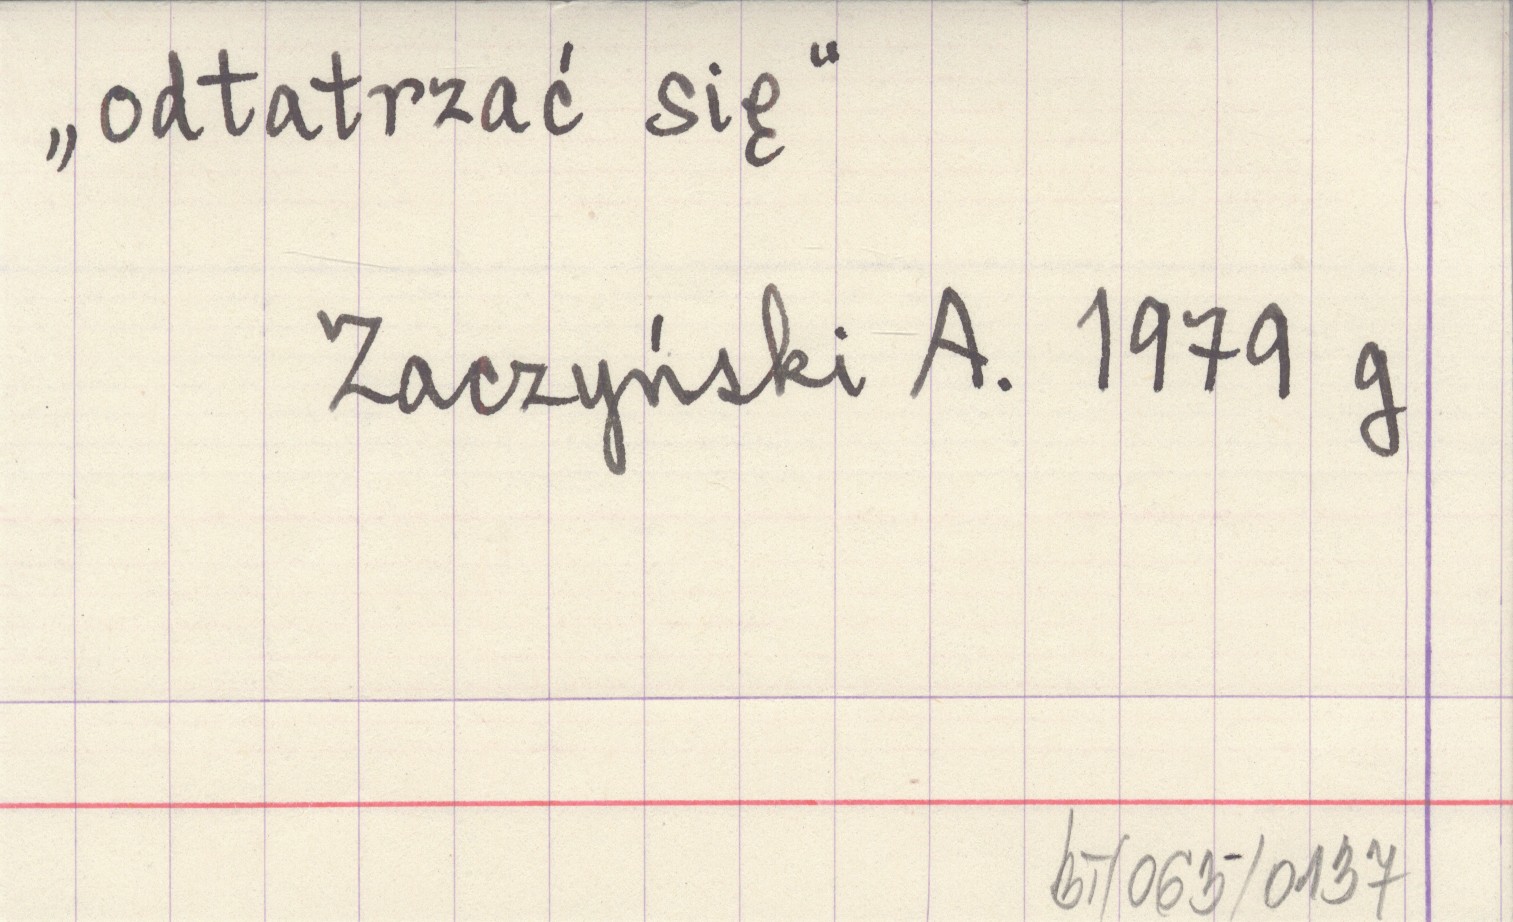 „odtatrzać się“
Zaczyński A. 1979 g
bT/065/0137